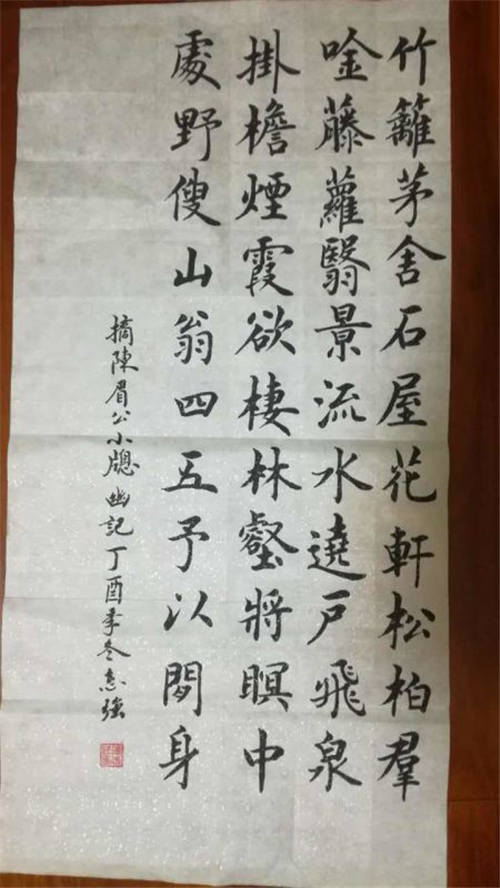 竹籬茅舍石屋花軒松柏羣
唫藤蘿翳景流水遶戶飛泉
掛檐煙霞欲棲林壑將瞑中
處野傁山翁四五予以閒身
摘陳眉公小牕幽記丁酉季冬志強